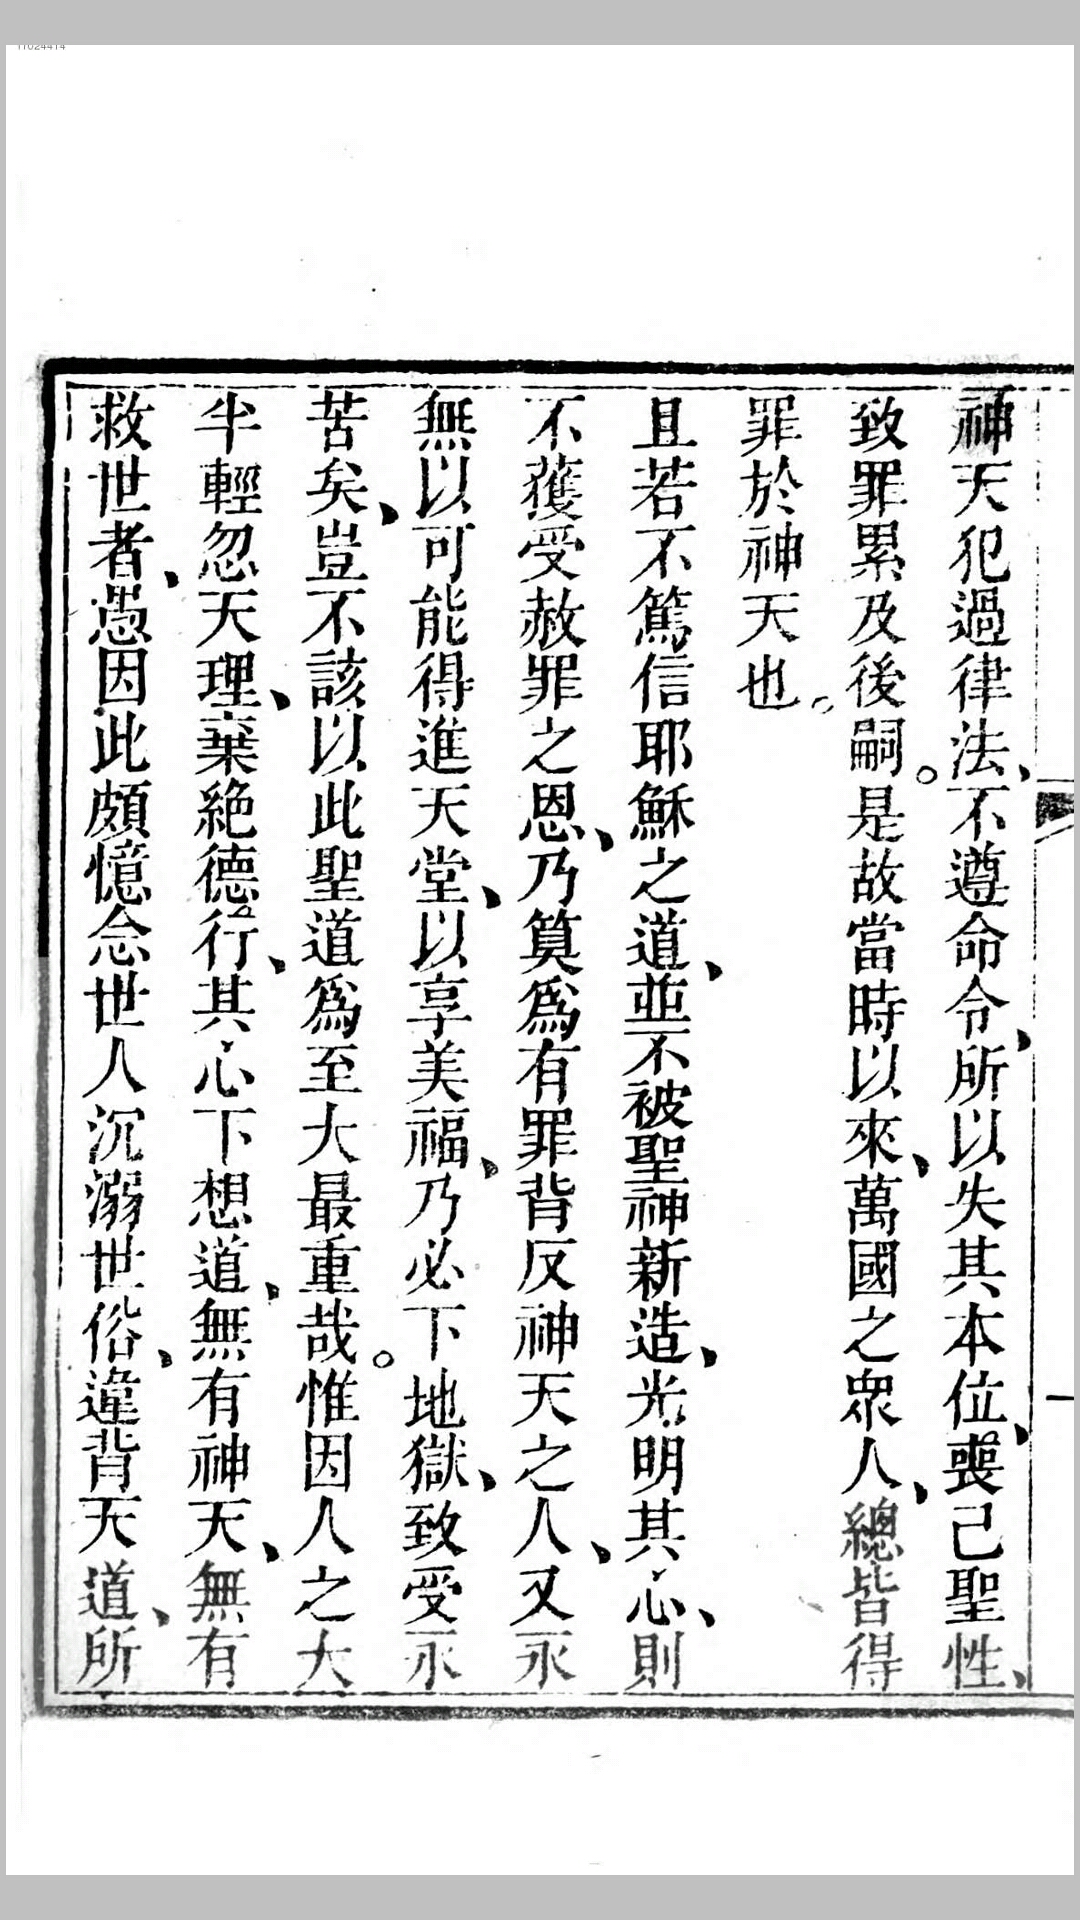 神天犯過律法、不遵命令、所以失其本位、喪己聖性、
致罪累及後嗣。是故當時以來、萬國之衆人、總皆得
罪於神天也。
且若不篤信耶穌之道、並不被聖神新造、光明其心、則
不獲受赦罪之恩、乃算爲有罪背反神天之人、又永
無以可能得進天堂、以享美福、乃必下地獄、致受永
苦矣、豈不該以此聖道爲至大最重哉。惟因人之大
半輕忽天理、棄絕德行、其心下想道、無有神天、無有
救世者、愚因此頗憶念世人沉溺世俗、違背天道、所